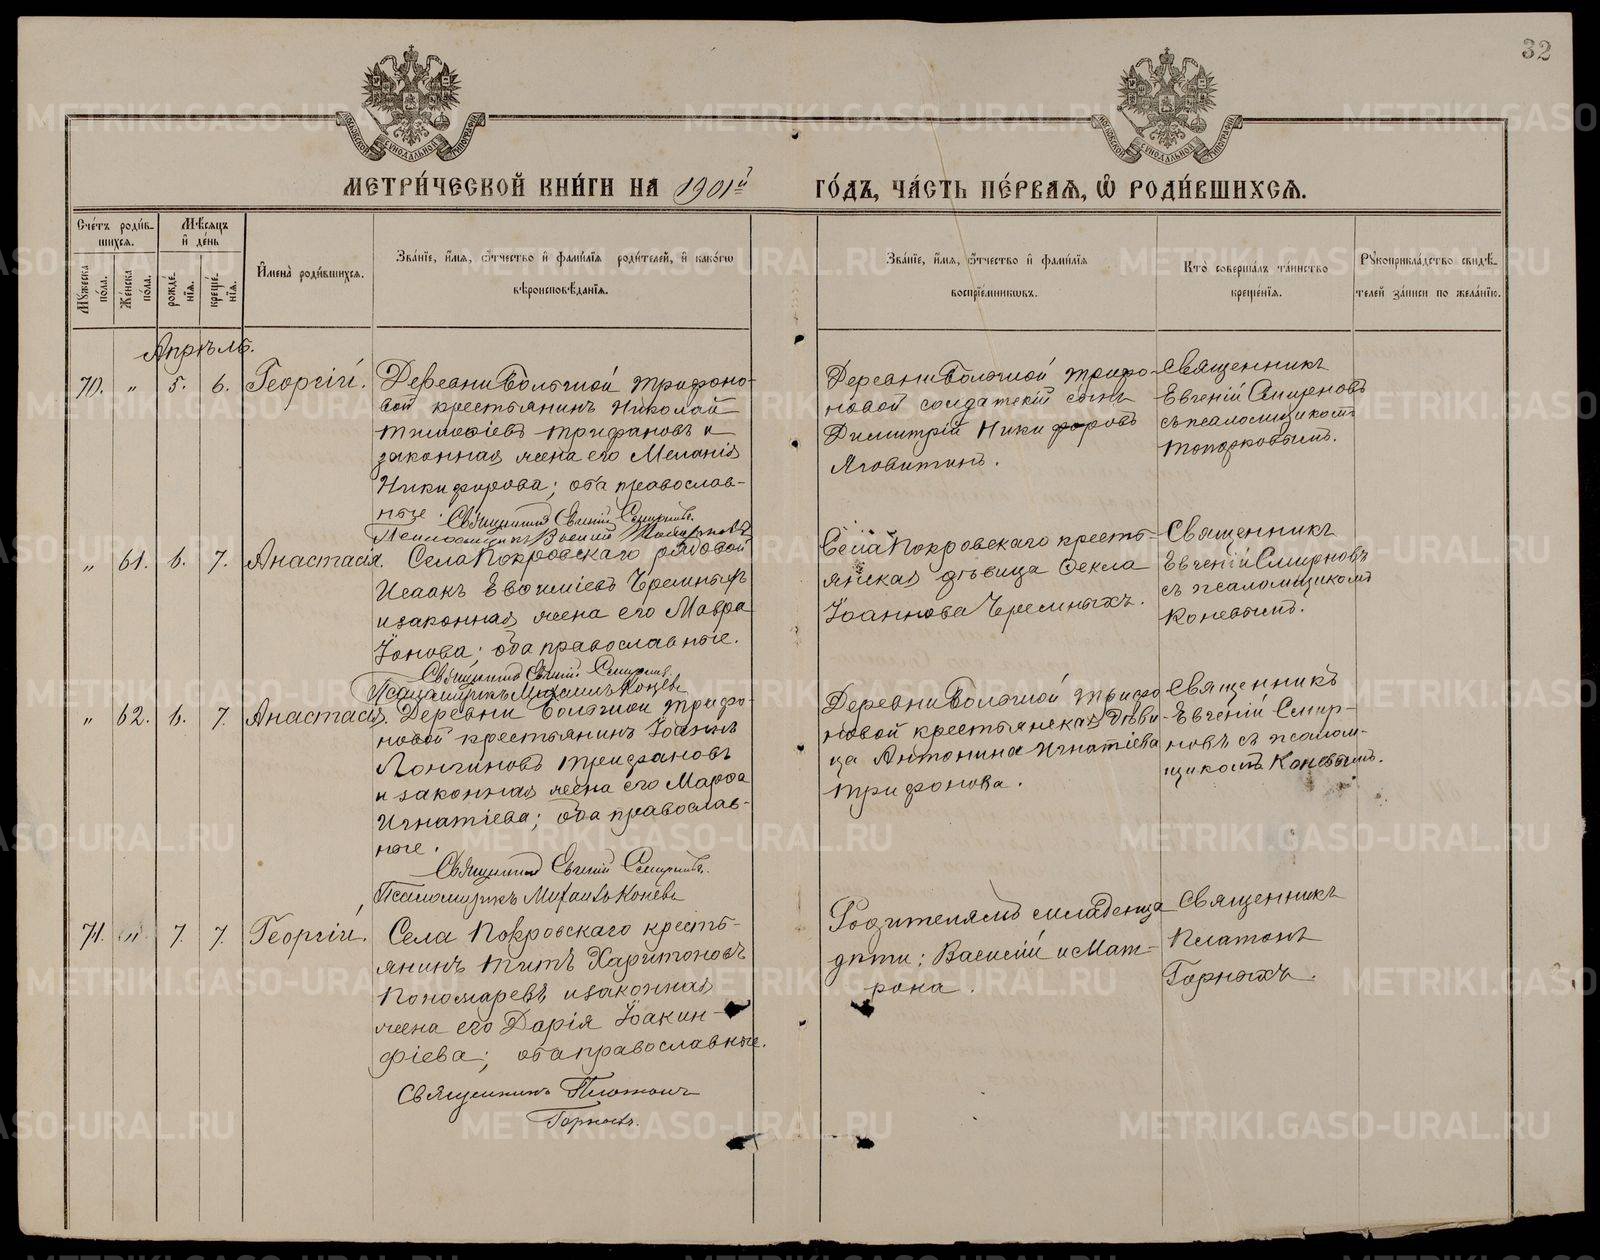 32
МОСКОВСКОЙ СѴНОДАЛЬНОЙ ТИПОГРАФІИ
МОСКОВСКОЙ СѴНОДАЛЬНОЙ ТИПОГРАФІИ
МЕТРИ́ЧЕСКОЙ КНИ́ГИ НА 1901й ГО́ДЪ, ЧА́СТЬ ПЕ́РВАѦ, Ѡ РОДИ́ВШИХСѦ.
Сче́тъ роди́в-
шихсѧ.
Мѣ́сѧцъ
и҆ де́нь
Мꙋ́жеска по́ла.
Же́нска по́ла.
рожде́нїѧ.
креще́нїѧ.
И҆мена̀ роди́вшихсѧ.
Зва́нїе, и҆́мѧ, ѻ҆́тчество и҆ фами́лїѧ роди́телей, и҆ како́гѡ
вѣроисповѣ́данїѧ.
Зва́нїе, и҆́мѧ, ѻ҆́тчество и҆ фами́лїѧ
воспрїе́мникѡвъ.
Кто̀ соверша́лъ та́инство
креще́нїѧ.
Рꙋкоприкла́дство свидѣ́-
телей за́писи по жела́нїю.
Апрѣль.
70. " 5. 6. Георгій.
Деревни Большой Трифоно-
вой крестьянинъ Николай
Тимоѳіевъ Трифановъ и
законная жена его Меланія
Никифорова; оба православ-
ные.
Священникъ Евгеній Смирновъ.
Деревни Большой Трифо-
новой солдатскій сынъ
Димитрій Никифоровъ
Яговитинъ.
Священникъ
Евгеній Смирновъ
съ псаломщикомъ
Топорковымъ.
" 61. 6. 7. Анастасія.
Села Покровскаго рядовой
Исаакъ Евѳиміевъ Черемныхъ
и законная жена его Мавра
Іонова; оба православные.
Священникъ Евгеній Смирновъ
Псаломщикъ Михаилъ Коневъ
Села Покровскаго кресть-
янская дѣвица Ѳекла
Іоаннова Черемныхъ.
Священникъ
Евгеній Смирновъ
съ псаломщикомъ
Коневымъ.
" 62. 6. 7. Анастасія.
Деревни Большой Трифо-
новой крестьянинъ Іоаннъ
Лонгиновъ Трифановъ
и законная жена его Марѳа
Игнатіева; оба православ-
ные.
Священникъ Евгеній Смирновъ.
Псаломщикъ Михаилъ Коневъ
Деревни Большой Трифо
новой крестьянская дѣви-
ца Антонина Игнатіева
Трифонова.
Священникъ
Евгеній Смир-
новъ съ псалом-
щикомъ Коневымъ.
71. " 7. 7. Георгій.
Села Покровскаго кресть-
янинъ Титъ Харитоновъ
Пономаревъ и законная
жена его Дарія Іоакин-
фіева; оба православные.
Священникъ Платонъ
Горныхъ.
Родителямъ младенца
дѣти: Василій и Мат-
рона.
Священникъ
Платонъ
Горныхъ.
METRIKI.GASO-URAL.RU